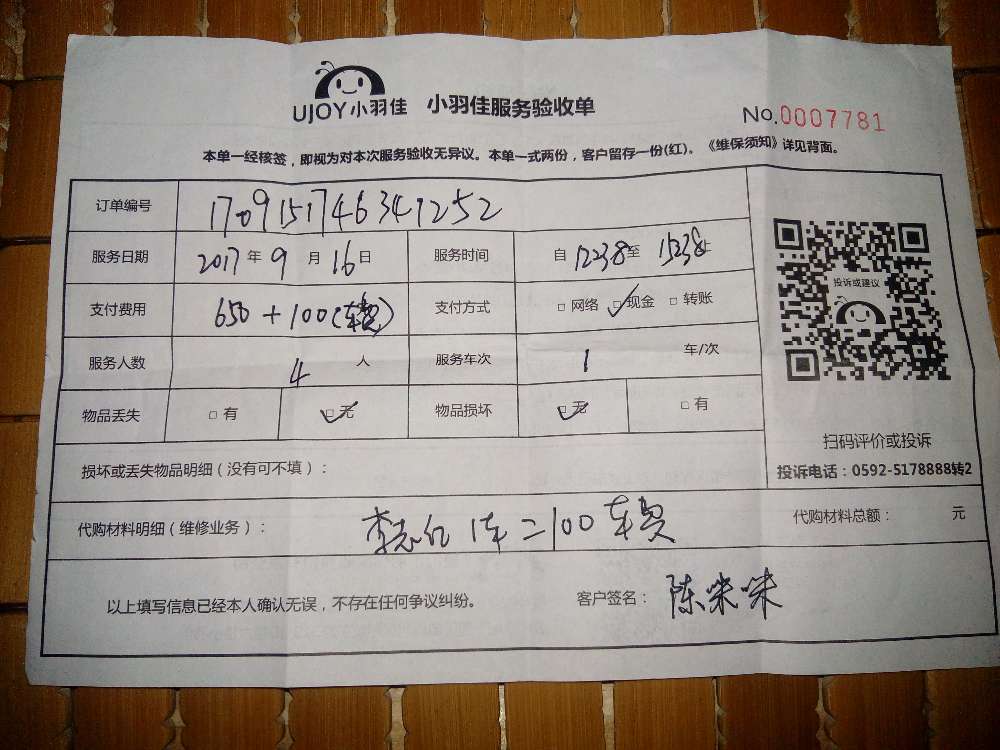 UJOY小羽佳 小羽佳服务验收单
No.0007781
本单一经核签，即视为对本次服务验收无异议。本单一式两份，客户留存一份(红)。《维保须知》详见背面。
订单编号 1709151746341252
服务日期 2017年9月16日 服务时间 自1238至1538止
支付费用 650+100(车费) 支付方式 □网络 ☑现金 □转账
服务人数 4人 服务车次 1 车/次
物品丢失 □有 ☑无 物品损坏 ☑无 □有
投诉或建议
扫码评价或投诉
投诉电话：0592-5178888转2
损坏或丢失物品明细（没有可不填）：
代购材料明细（维修业务）： 1车=100车费 代购材料总额： 元
以上填写信息已经本人确认无误，不存在任何争议纠纷。 客户签名： 陈咪咪